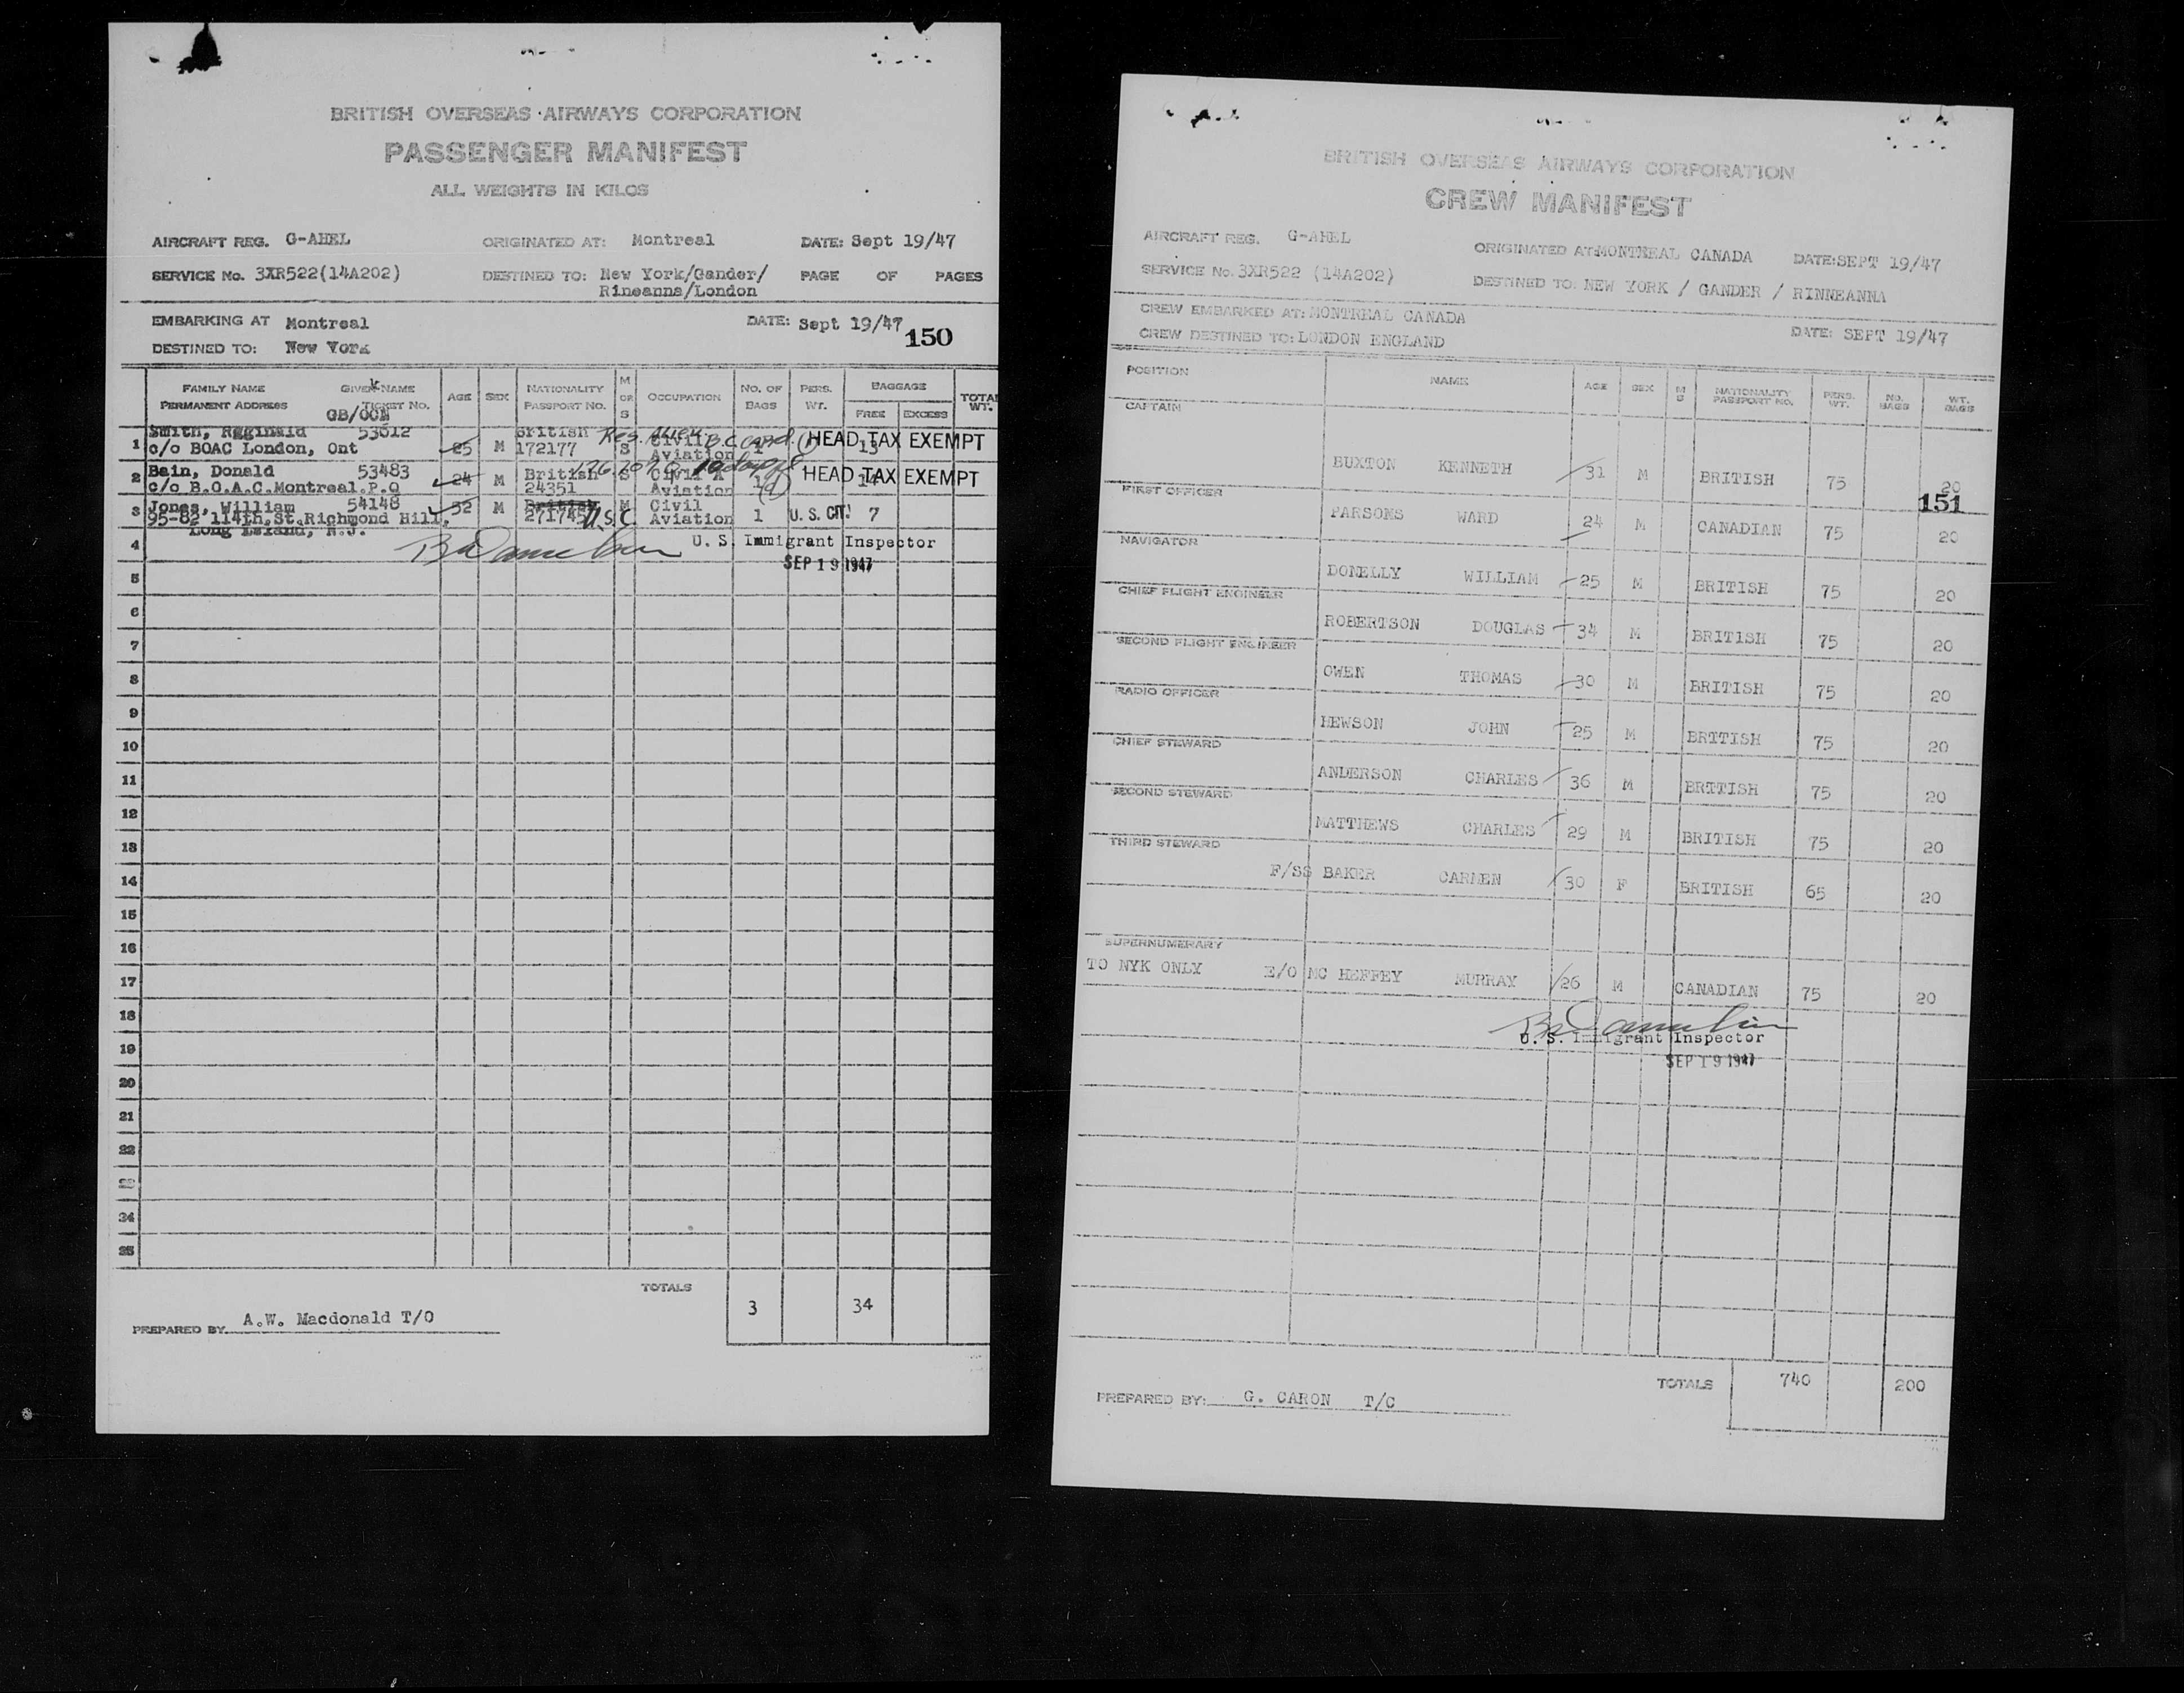 BRITISH OVERSEAS AIRWAYS CORPORATION
PASSENGER MANIFEST
ALL WEIGHTS IN KILOS
AIRCRAFT REG. G-AHEL ORIGINATED AT: Montreal DATE: Sept 19/47
SERVICE No. 3XR522(14A202) DESTINED TO: New York/Gander/ PAGE OF PAGES
Rineanna/London
EMBARKING AT Montreal DATE: Sept 19/47
150
DESTINED TO: New York
FAMILY NAME GIVEN NAME AGE SEX NATIONALITY M OR S OCCUPATION NO. OF BAGS PERS. WT. BAGGAGE TOTAL WT.
PERMANENT ADDRESS TICKET No. PASSPORT NO. FREE EXCESS
GB/OCM
1 Smith, Rgginald 53612 25 M British S Civil 1 HEAD TAX EXEMPT 13
c/o BOAC London, Ont 172177 Aviation
Res. Alien B.C. card
2 Bain, Donald 53483 24 M British S Civil 1 HEAD TAX EXEMPT 14
c/o B.O.A.C.Montreal.P.Q 24351 Aviation
3 Jones, William 54148 52 M British M Civil 1 U.S. CIT. 7
95-82 114th.St.Richmond Hill, 271745 U.S.C. Aviation
Long Island, N.J.
4 U. S. Immigrant Inspector
SEP 19 1947
5
6
7
8
9
10
11
12
13
14
15
16
17
18
19
20
21
22
23
24
25
TOTALS 3 34
PREPARED BY A.W. Macdonald T/O
BRITISH OVERSEAS AIRWAYS CORPORATION
CREW MANIFEST
AIRCRAFT REG. G-AHEL ORIGINATED AT: MONTREAL CANADA DATE: SEPT 19/47
SERVICE No. 3XR522 (14A202) DESTINED TO: NEW YORK / GANDER / RINNEANNA
CREW EMBARKED AT: MONTREAL CANADA
CREW DESTINED TO: LONDON ENGLAND DATE: SEPT 19/47
POSITION NAME AGE SEX M S NATIONALITY PASSPORT NO. PERS. WT. NO. BAGS WT. BAGS
CAPTAIN
BUXTON KENNETH 31 M BRITISH 75 20
151
FIRST OFFICER
PARSONS WARD 24 M CANADIAN 75 20
NAVIGATOR
DONELLY WILLIAM 25 M BRITISH 75 20
CHIEF FLIGHT ENGINEER
ROBERTSON DOUGLAS 34 M BRITISH 75 20
SECOND FLIGHT ENGINEER
OWEN THOMAS 30 M BRITISH 75 20
RADIO OFFICER
HEWSON JOHN 25 M BRITISH 75 20
CHIEF STEWARD
ANDERSON CHARLES 36 M BRITISH 75 20
SECOND STEWARD
MATTHEWS CHARLES 29 M BRITISH 75 20
THIRD STEWARD
F/SS BAKER CARMEN 30 F BRITISH 65 20
SUPERNUMERARY
TO NYK ONLY E/O MC HEFFEY MURRAY 26 M CANADIAN 75 20
U. S. Immigrant Inspector
SEP 19 1947
TOTALS 740 200
PREPARED BY: G. CARON T/C